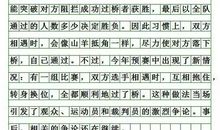 能突破对方阻拦成功过桥者获胜，最后以全队
通过的人数多少决定胜负。因此习惯上，双方
相遇时，会像山羊抵角一样，尽力使对方落下
桥，自己通过。不过，今年预赛中出现了新情
况：有一组比赛，双方选手相遇时，互相抱住，
转身换位，全都顺利地过了桥。这种做法当场
引发了观众、运动员和裁判员的激烈争论。事
后，相关的争论还在继续